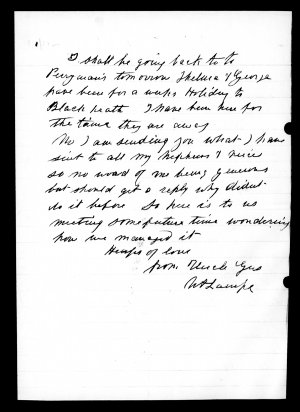 I shall be going back to to
Pengurais tomorrow Thelma & George
have been for a weeks Holiday to
Black heath I have been here for
the time they are away
No I am sending you what I have
sent to all my Nephews & neices
so no word of me being generous
but should get a reply why didnt
do it before So here is to us
meeting some future time wondering
how we managed it
Heaps of love
from Uncle Gus